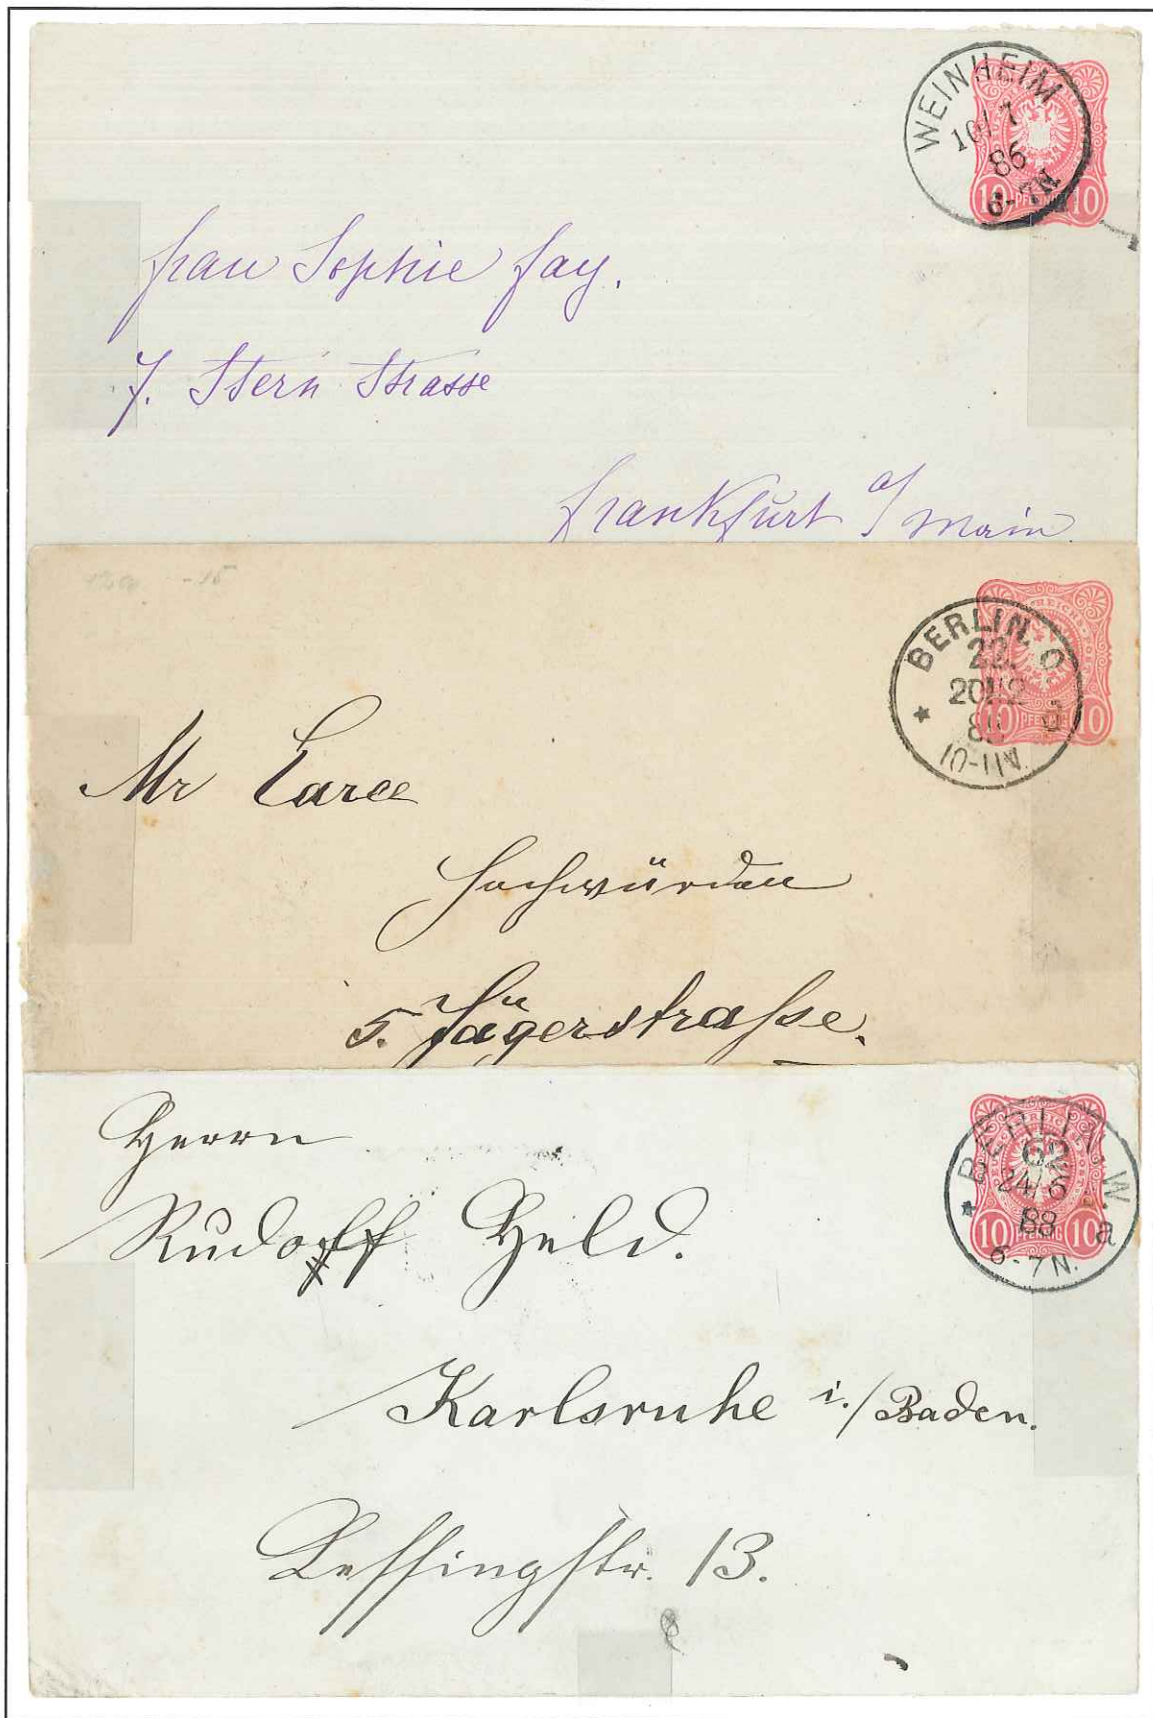 WEINHEIM
10/7
86
6-7N
10 PFENNIG 10
Frau Sophie Fay.
7. Stern Strasse
Frankfurt a/ Main.
BERLIN. O
22.
REICHS-POST
10 PFENNIG 10
10-11V.
Mr
Hochwürden
5. Jägerstraſse.
BERLIN. W.
62
24/6
88
a
6-7N.
10 PFENNIG 10
Herrn
Rudolf Held.
Karlsruhe i./Baden.
Leſſingſtr. 13.